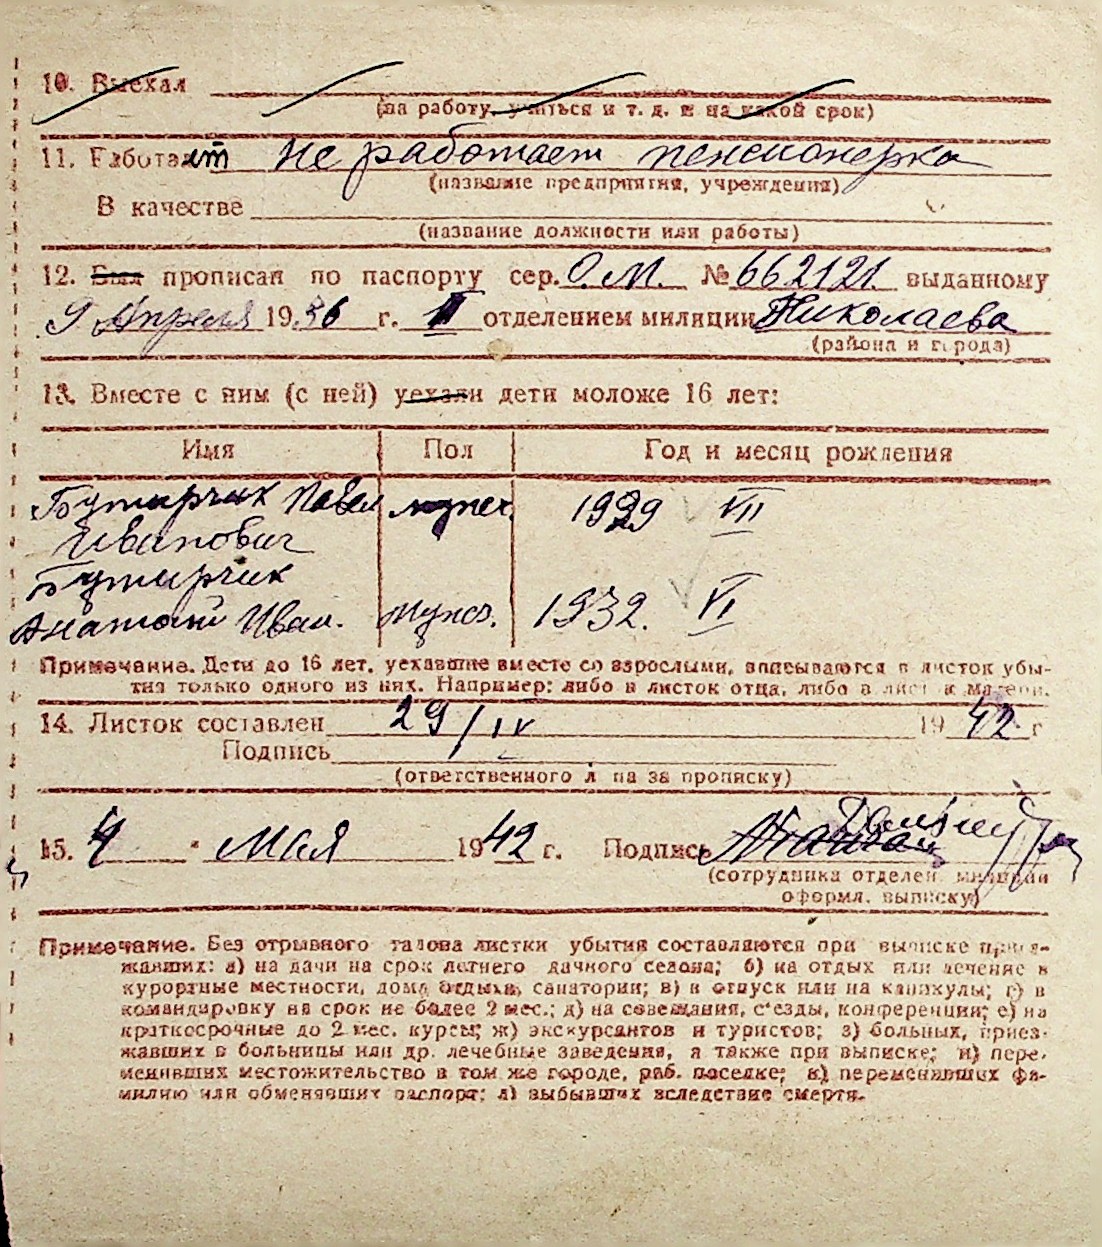 10. Выехал
(на работу, учиться и т. д. и на какой срок)
11. Работает не работает пенсионерка
(название предприятия, учреждения)
В качестве
(название должности или работы)
12. Был прописан по паспорту сер. О.М. № 662121 выданному
9 Апреля 1936 г. II отделением милиции Николаева
(района и города)
13. Вместе с ним (с ней) уехали дети моложе 16 лет:
Имя Пол Год и месяц рождения
Бутырчик Павел мужс. 1929 VII
Иванович
Бутырчик
Анатолий Иван. мужс. 1932. VI
Примечание. Дети до 16 лет, уехавшие вместе со взрослыми, вписываются в листок убы-
тия только одного из них. Например: либо в листок отца, либо в листок матери.
14. Листок составлен 29/IV 1942 г
Подпись
(ответственного лица за прописку)
15. 4 " Мая 1942 г. Подпись
(сотрудника отделен. милиции
оформл. выписку)
Примечание. Без отрывного талона листки убытия составляются при выписке приез-
жавших: а) на дачи на срок летнего дачного сезона; б) на отдых или лечение в
курортные местности, дома отдыха, санатории; в) в отпуск или на каникулы; г) в
командировку на срок не более 2 мес.; д) на совещания, с'езды, конференции; е) на
краткосрочные до 2 мес. курсы; ж) экскурсантов и туристов; з) больных, приез-
жавших в больницы или др. лечебные заведения, а также при выписке; и) пере-
менивших местожительство в том же городе, раб. поселке; к) переменивших фа-
милию или обменявших паспорт; л) выбывших вследствие смерти.